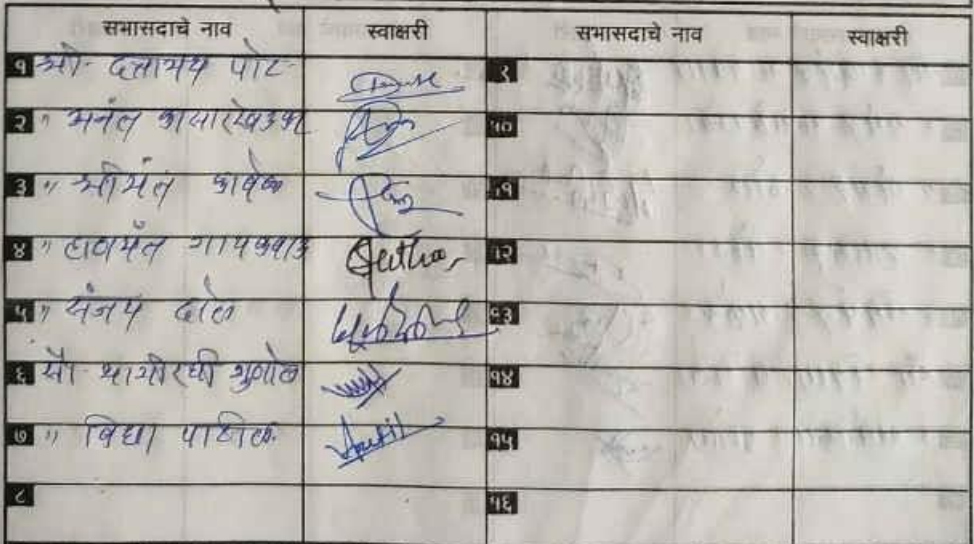 सभासदाचे नाव स्वाक्षरी सभासदाचे नाव स्वाक्षरी
१ श्री- दत्तात्रय पोटे ९
२ " अनंत कासारखेडकर १०
३ " श्रीमंत ११
४ " हणमंत गायकवाड १२
५ " संजय ढोले १३
६ सौ- भागीरथी १४
७ " विद्या पाटील १५
८ १६